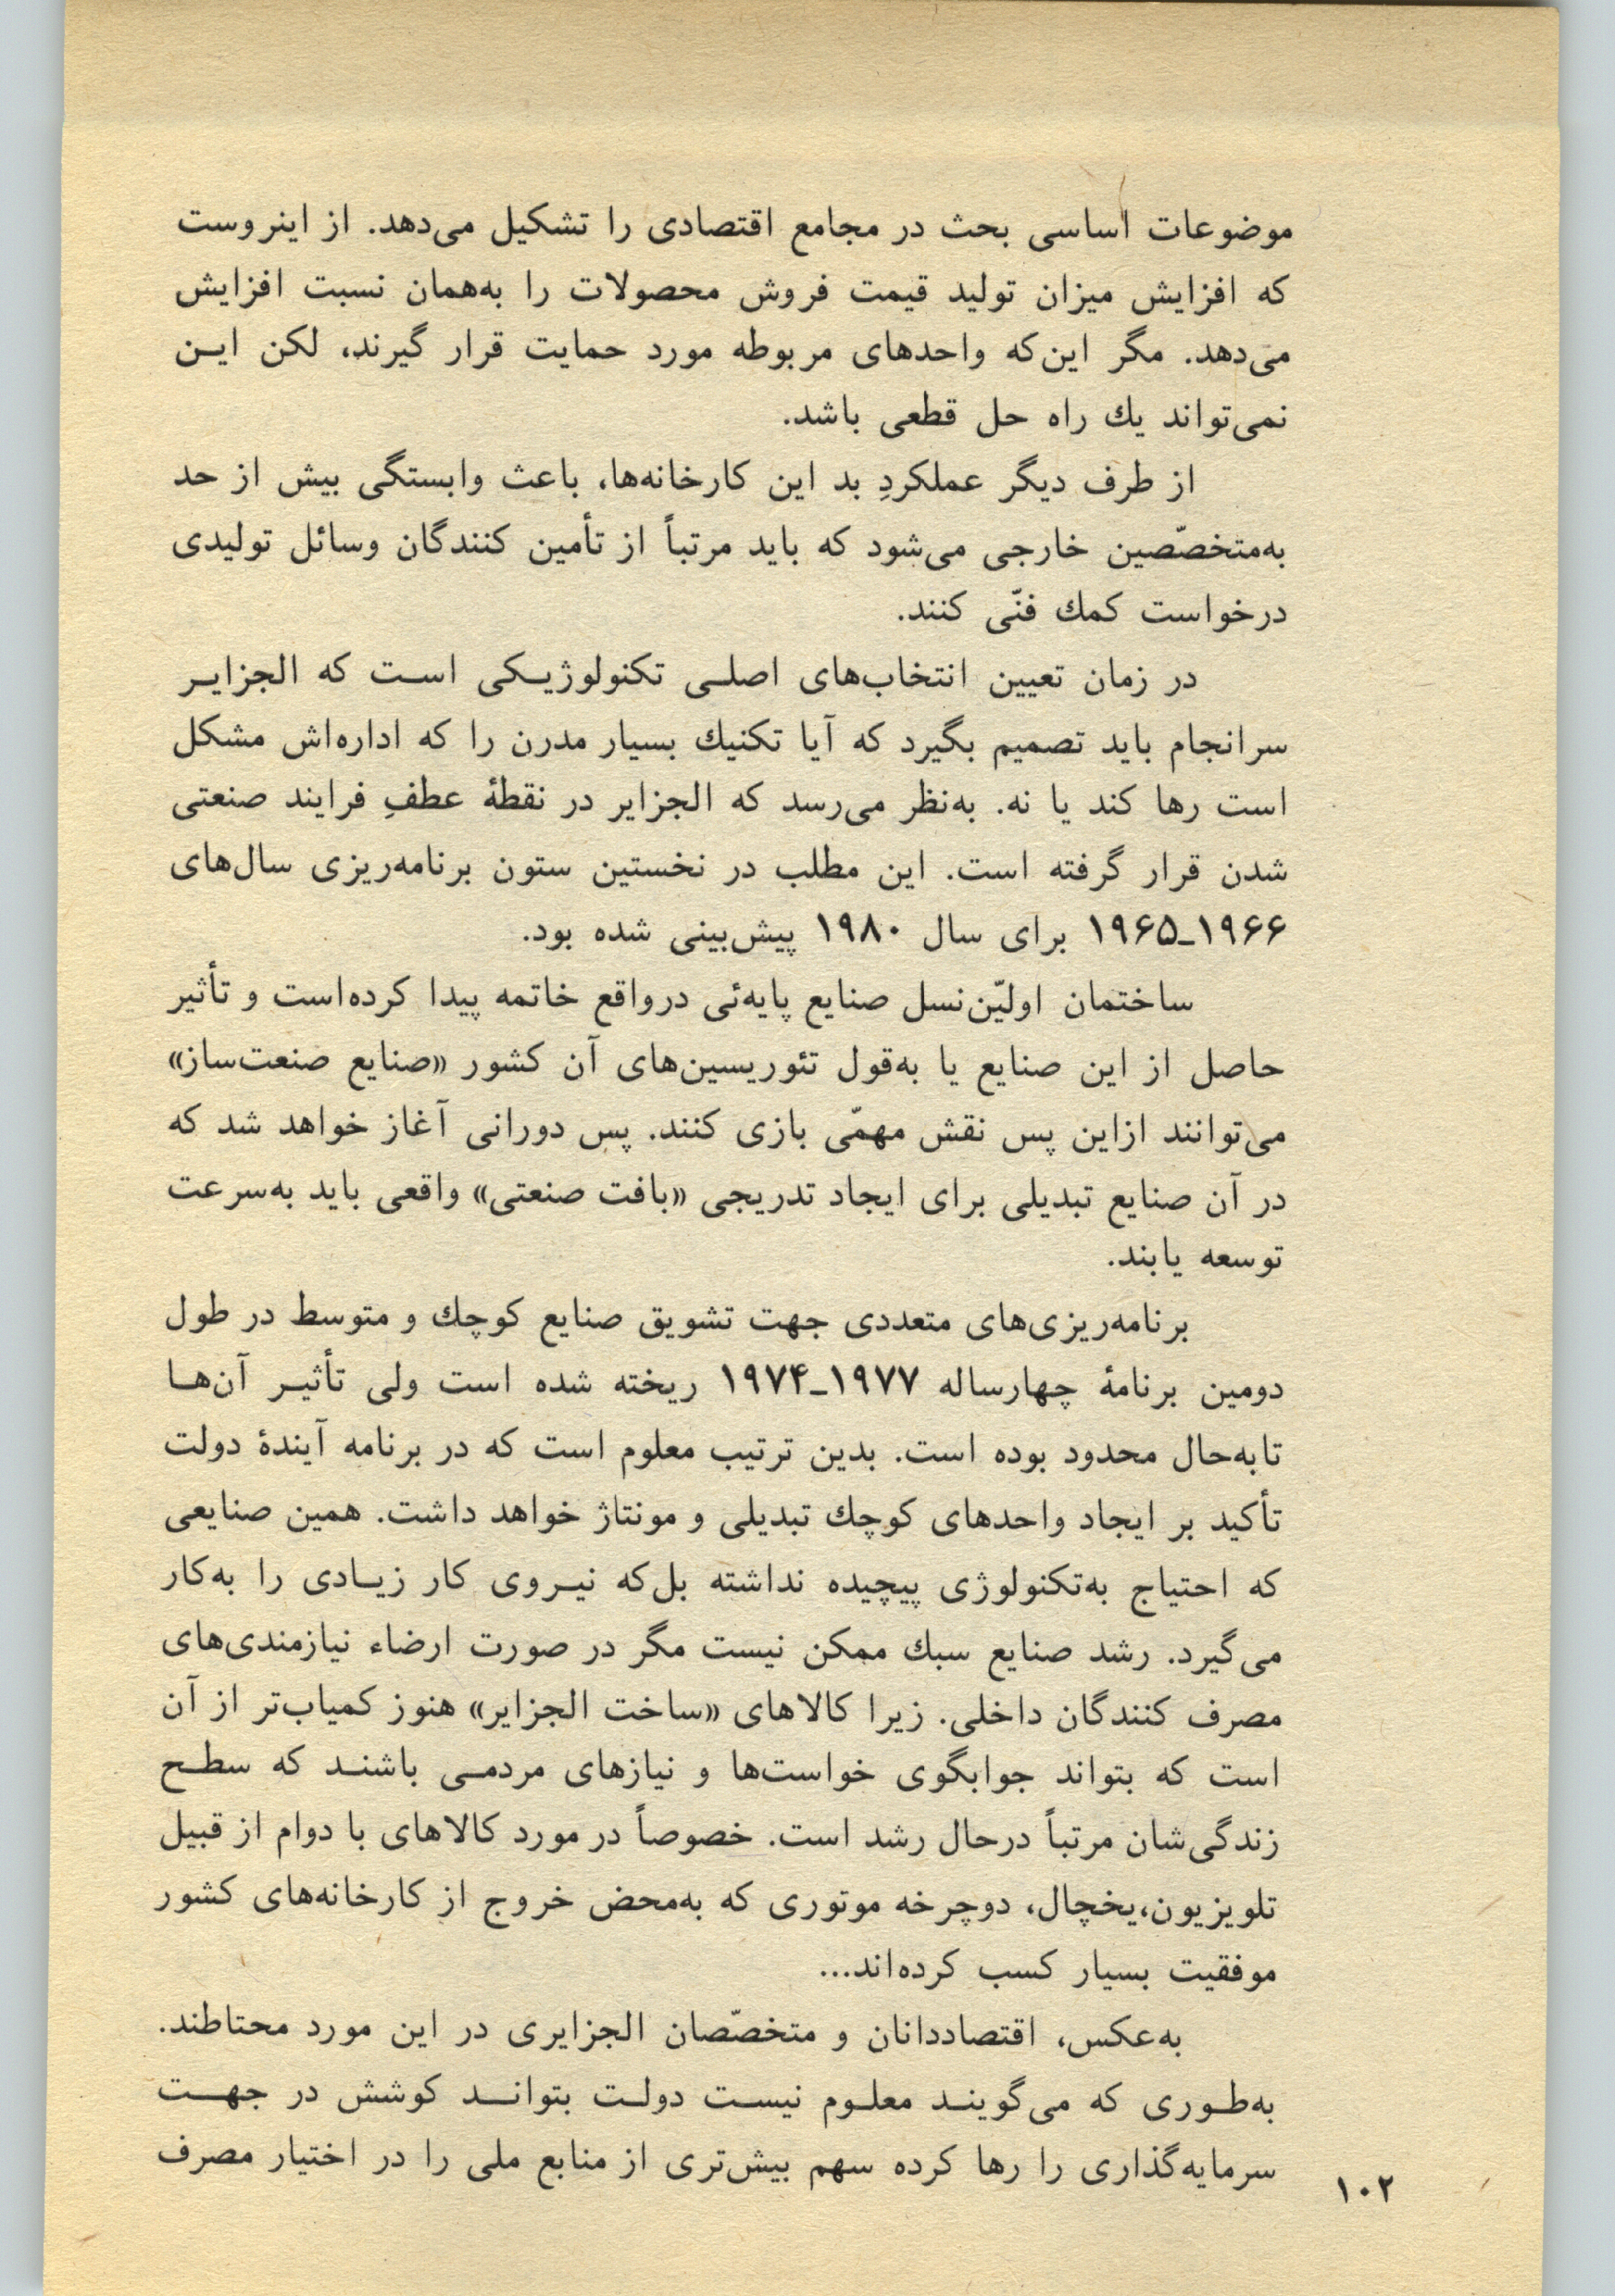 موضوعات اساسی بحث در مجامع اقتصادی را تشکیل می‌دهد. از اینروست
که افزایش میزان تولید قیمت فروش محصولات را به‌همان نسبت افزایش
می‌دهد. مگر این‌که واحدهای مربوطه مورد حمایت قرار گیرند، لکن ایـن
نمی‌تواند یك راه حل قطعی باشد.
از طرف دیگر عملکردِ بد این کارخانه‌ها، باعث وابستگی بیش از حد
به‌متخصّصین خارجی می‌شود که باید مرتباً از تأمین کنندگان وسائل تولیدی
درخواست کمك فنّی کنند.
در زمان تعیین انتخاب‌های اصلـی تکنولوژیـکی اسـت که الجزایـر
سرانجام باید تصمیم بگیرد که آیا تکنیك بسیار مدرن را که اداره‌اش مشکل
است رها کند یا نه. به‌نظر می‌رسد که الجزایر در نقطهٔ عطفِ فرایند صنعتی
شدن قرار گرفته است. این مطلب در نخستین ستون برنامه‌ریزی سال‌های
۱۹۶۵ـ۱۹۶۶ برای سال ۱۹۸۰ پیش‌بینی شده بود.
ساختمان اولیّن‌نسل صنایع پایه‌ئی درواقع خاتمه پیدا کرده‌است و تأثیر
حاصل از این صنایع یا به‌قول تئوریسین‌های آن کشور «صنایع صنعت‌ساز»
می‌توانند ازاین پس نقش مهمّی بازی کنند. پس دورانی آغاز خواهد شد که
در آن صنایع تبدیلی برای ایجاد تدریجی «بافت صنعتی» واقعی باید به‌سرعت
توسعه یابند.
برنامه‌ریزی‌های متعددی جهت تشویق صنایع کوچك و متوسط در طول
دومین برنامهٔ چهارساله ۱۹۷۴ـ۱۹۷۷ ریخته شده است ولی تأثیـر آن‌هـا
تابه‌حال محدود بوده است. بدین ترتیب معلوم است که در برنامه آیندهٔ دولت
تأکید بر ایجاد واحدهای کوچك تبدیلی و مونتاژ خواهد داشت. همین صنایعی
که احتیاج به‌تکنولوژی پیچیده نداشته بل‌که نیـروی کار زیـادی را به‌کار
می‌گیرد. رشد صنایع سبك ممکن نیست مگر در صورت ارضاء نیازمندی‌های
مصرف کنندگان داخلی. زیرا کالاهای «ساخت الجزایر» هنوز کمیاب‌تر از آن
است که بتواند جوابگوی خواست‌ها و نیازهای مردمـی باشنـد که سطـح
زندگی‌شان مرتباً درحال رشد است. خصوصاً در مورد کالاهای با دوام از قبیل
تلویزیون،یخچال، دوچرخه موتوری که به‌محض خروج از کارخانه‌های کشور
موفقیت بسیار کسب کرده‌اند...
به‌عکس، اقتصاددانان و متخصّصان الجزایری در این مورد محتاطند.
به‌طـوری که می‌گوینـد معلـوم نیسـت دولـت بتوانـد کوشش در جهـت
سرمایه‌گذاری را رها کرده سهم بیش‌تری از منابع ملی را در اختیار مصرف
۱۰۲